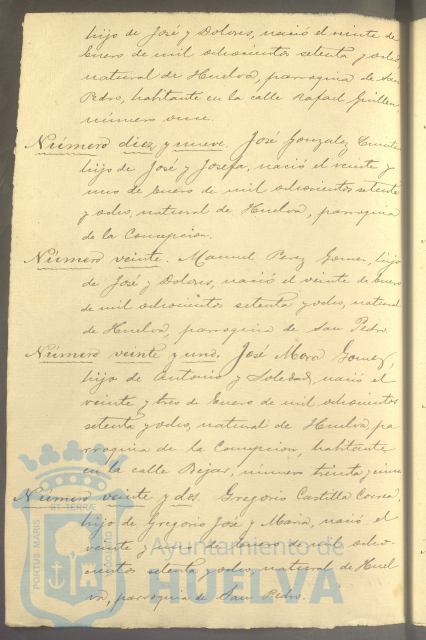 hijo de José y Dolores, nació el veinte de
Enero de mil ochocientos setenta y ocho,
natural de Huelva, parroquia de San
Pedro, habitante en la calle Rafael Guillen,
número once.
Número diez y nueve. José Gonzalez
hijo de José y Josefa, nació el veinte y
uno de Enero de mil ochocientos setenta
y ocho, natural de Huelva, parroquia
de la Concepcion.
Número veinte. Manuel Perez Gomez, hijo
de José y Dolores, nació el veinte de Enero
de mil ochocientos setenta y ocho, natural
de Huelva, parroquia de San Pedro.
Número veinte y uno. José Mora Gomez,
hijo de Antonio y Soledad, nació el
veinte y tres de Enero de mil ochocientos
setenta y ocho, natural de Huelva pa
rroquia de la Concepcion, habitante
en la calle Bejar, número treinta y cinco
Número veinte y dos. Gregorio Castilla Correa,
hijo de Gregorio José y Maria, nació el
veinte y de Enero de mil ocho-
cientos setenta y ocho, natural de Huel
va, parroquia de San Pedro.
PORTUS MARIS
ET TERRÆ
CUSTODIA
Ayuntamiento de
HUELVA